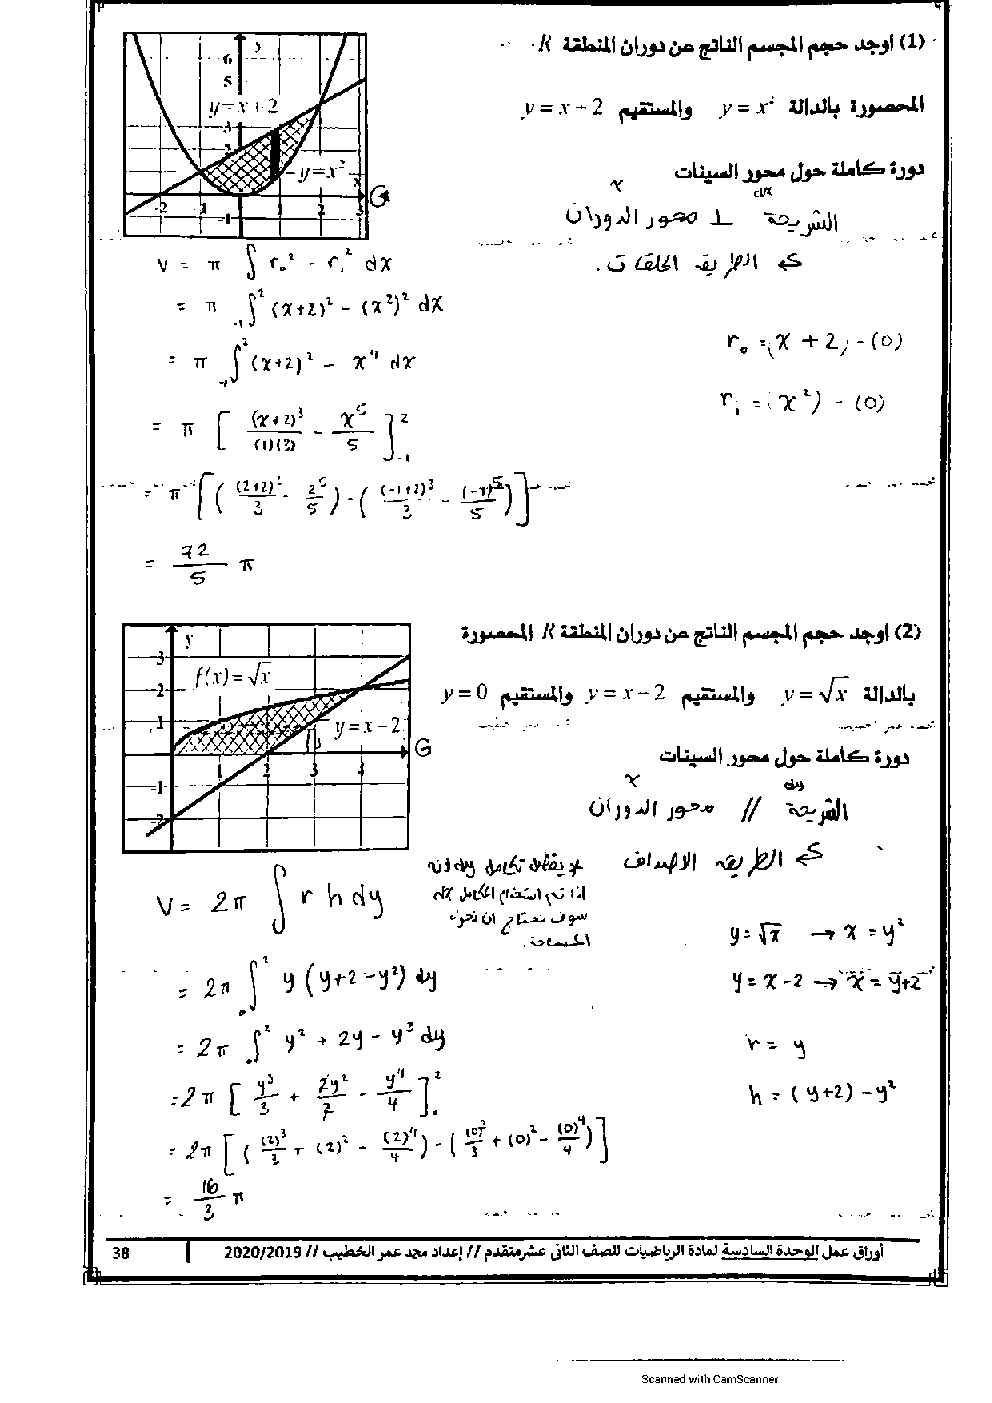 (1) اوجد حجم المجسم الناتج عن دوران المنطقة R
المحصورة بالدالة y = x² والمستقيم y = x + 2
دورة كاملة حول محور السينات
x
dx
الشريحة ⊥ محور الدوران
الطريقة الحلقات.
y
6
5
y = x + 2
3
2
y = x²
x
-2 -1 1 2 3
-1
V = π ∫ r₀² - rᵢ² dx
= π ∫₋₁² (x+2)² - (x²)² dx
r₀ = (x + 2) - (0)
= π ∫₋₁² (x+2)² - x⁴ dx
rᵢ = (x²) - (0)
= π [ (x+2)³/(1)(3) - x⁵/5 ]₋₁²
= π [ ( (2+2)³/3 - 2⁵/5 ) - ( (-1+2)³/3 - (-1)⁵/5 ) ]
= 72/5 π
(2) اوجد حجم المجسم الناتج عن دوران المنطقة R المحصورة
بالدالة y = √x والمستقيم y = x - 2 والمستقيم y = 0
دورة كاملة حول محور السينات
x
dy
الشريحة // محور الدوران
الطريقة الاصداف
y
3
f(x) = √x
2
1
y = x - 2
1 2 3 4
-1
-2
* يفضل تكامل dy لانه
اذا تم استخدام التكامل dx
سوف نحتاج ان نجزء
المساحة.
V = 2π ∫ r h dy
y = √x → x = y²
= 2π ∫₀² y (y+2-y²) dy
y = x - 2 → x = y+2
= 2π ∫₀² y² + 2y - y³ dy
r = y
= 2π [ y³/3 + 2y²/2 - y⁴/4 ]₀²
h = (y+2) - y²
= 2π [ ( (2)³/3 + (2)² - (2)⁴/4 ) - ( (0)³/3 + (0)² - (0)⁴/4 ) ]
= 16/3 π
أوراق عمل الوحدة السادسة لمادة الرياضيات للصف الثاني عشر متقدم // إعداد محمد عمر الخطيب // 2020/2019
38
Scanned with CamScanner